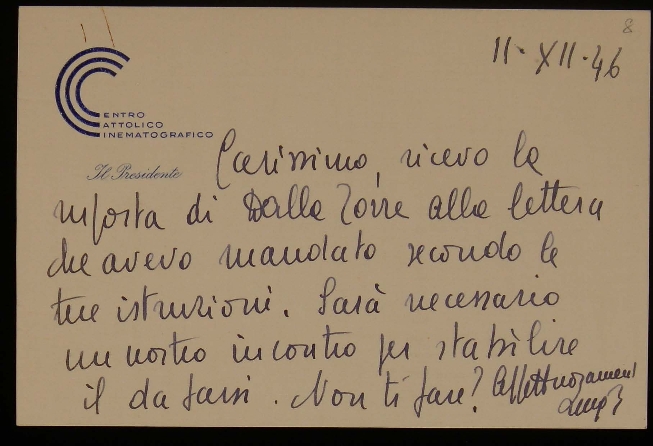 8
11·XII·46
CENTRO
CATTOLICO
CINEMATOGRAFICO
Il Presidente
Carissimo, ricevo la
risposta di Dalla Torre alla lettera
che avevo mandato secondo le
tue istruzioni. Sarà necessario
un nostro incontro per stabilire
il da farsi. Non ti pare? Affettuosament